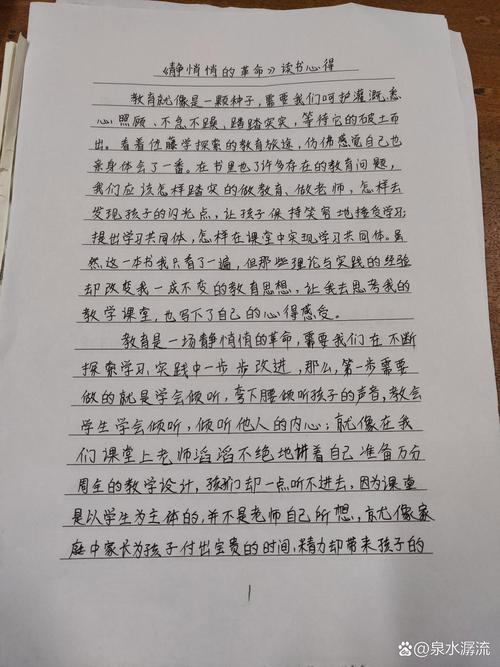 《静悄悄的革命》读书心得
教育就像是一颗种子,需要我们呵护灌溉、悉
心照顾、不急不躁,踏踏实实,等待它的破土而
出。看着佐藤学探索的教育旅途,仿佛感觉自己也
亲身体会了一番。在书里也了许多存在的教育问题,
我们应该怎样踏实的做教育、做老师,怎样去
发现孩子的闪光点,让孩子保持笑穷地接受学习;
提出学习共同体,怎样在课堂中实现学习共同体。虽
然这一本书我只看了一遍,但那些理论与实践的经验
却改变我一成不变的教育思想,让我去思考我的
教学课堂,也写下了自己的心得感受。
教育是一场静悄悄的革命,需要我们在不断
探索学习、实践中一步步改进,那么,第一步需要
做的就是学会倾听,弯下腰倾听孩子的声音,教会
学生学会倾听,倾听他人的内心;就像在我
们课堂上老师滔滔不绝地讲着自己准备万分
周全的教学设计,孩子们却一点听不进去,因为课堂
是以学生为主体的,并不是老师自己所想,就像家
庭中家长为孩子付出宝贵的时间、精力却带来孩子的
1
百家号/泉水潺流